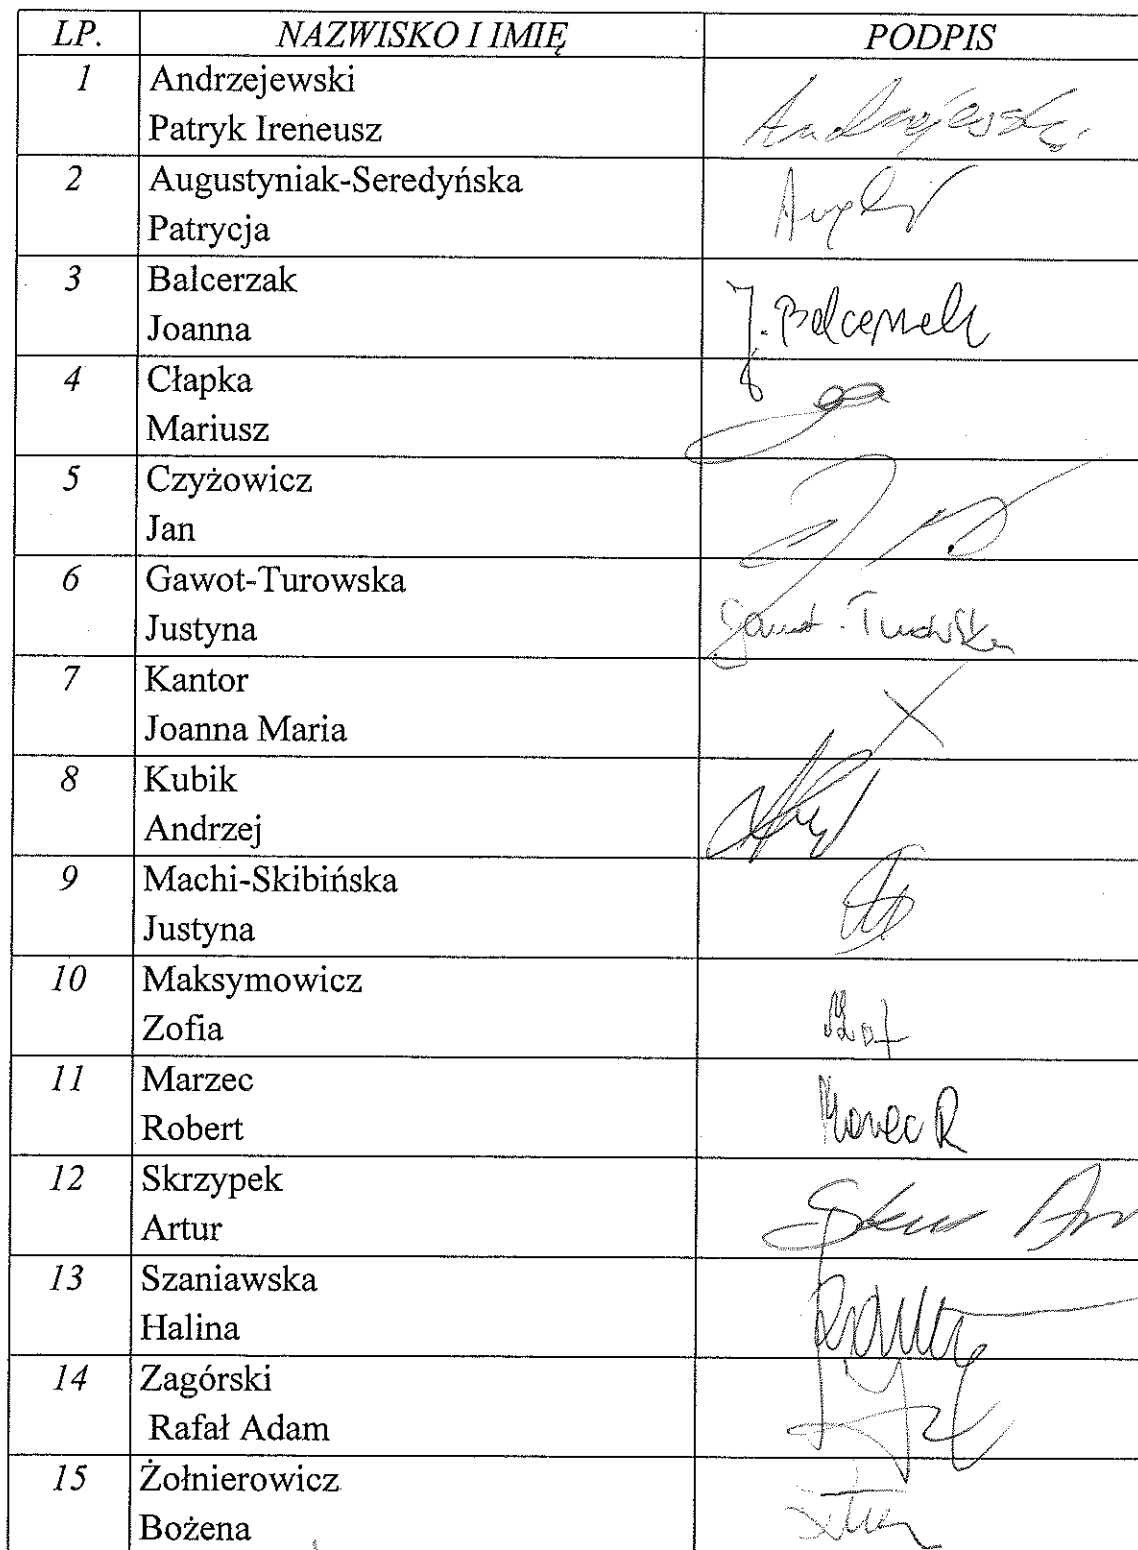 LP. NAZWISKO I IMIĘ PODPIS
1 Andrzejewski
Patryk Ireneusz
Andrzejewski
2 Augustyniak-Seredyńska
Patrycja
3 Balcerzak
Joanna
J. Balcerzak
4 Cłapka
Mariusz
5 Czyżowicz
Jan
6 Gawot-Turowska
Justyna
Gawot-Turowska
7 Kantor
Joanna Maria
X
8 Kubik
Andrzej
9 Machi-Skibińska
Justyna
10 Maksymowicz
Zofia
11 Marzec
Robert
Marzec R
12 Skrzypek
Artur
13 Szaniawska
Halina
14 Zagórski
Rafał Adam
15 Żołnierowicz
Bożena